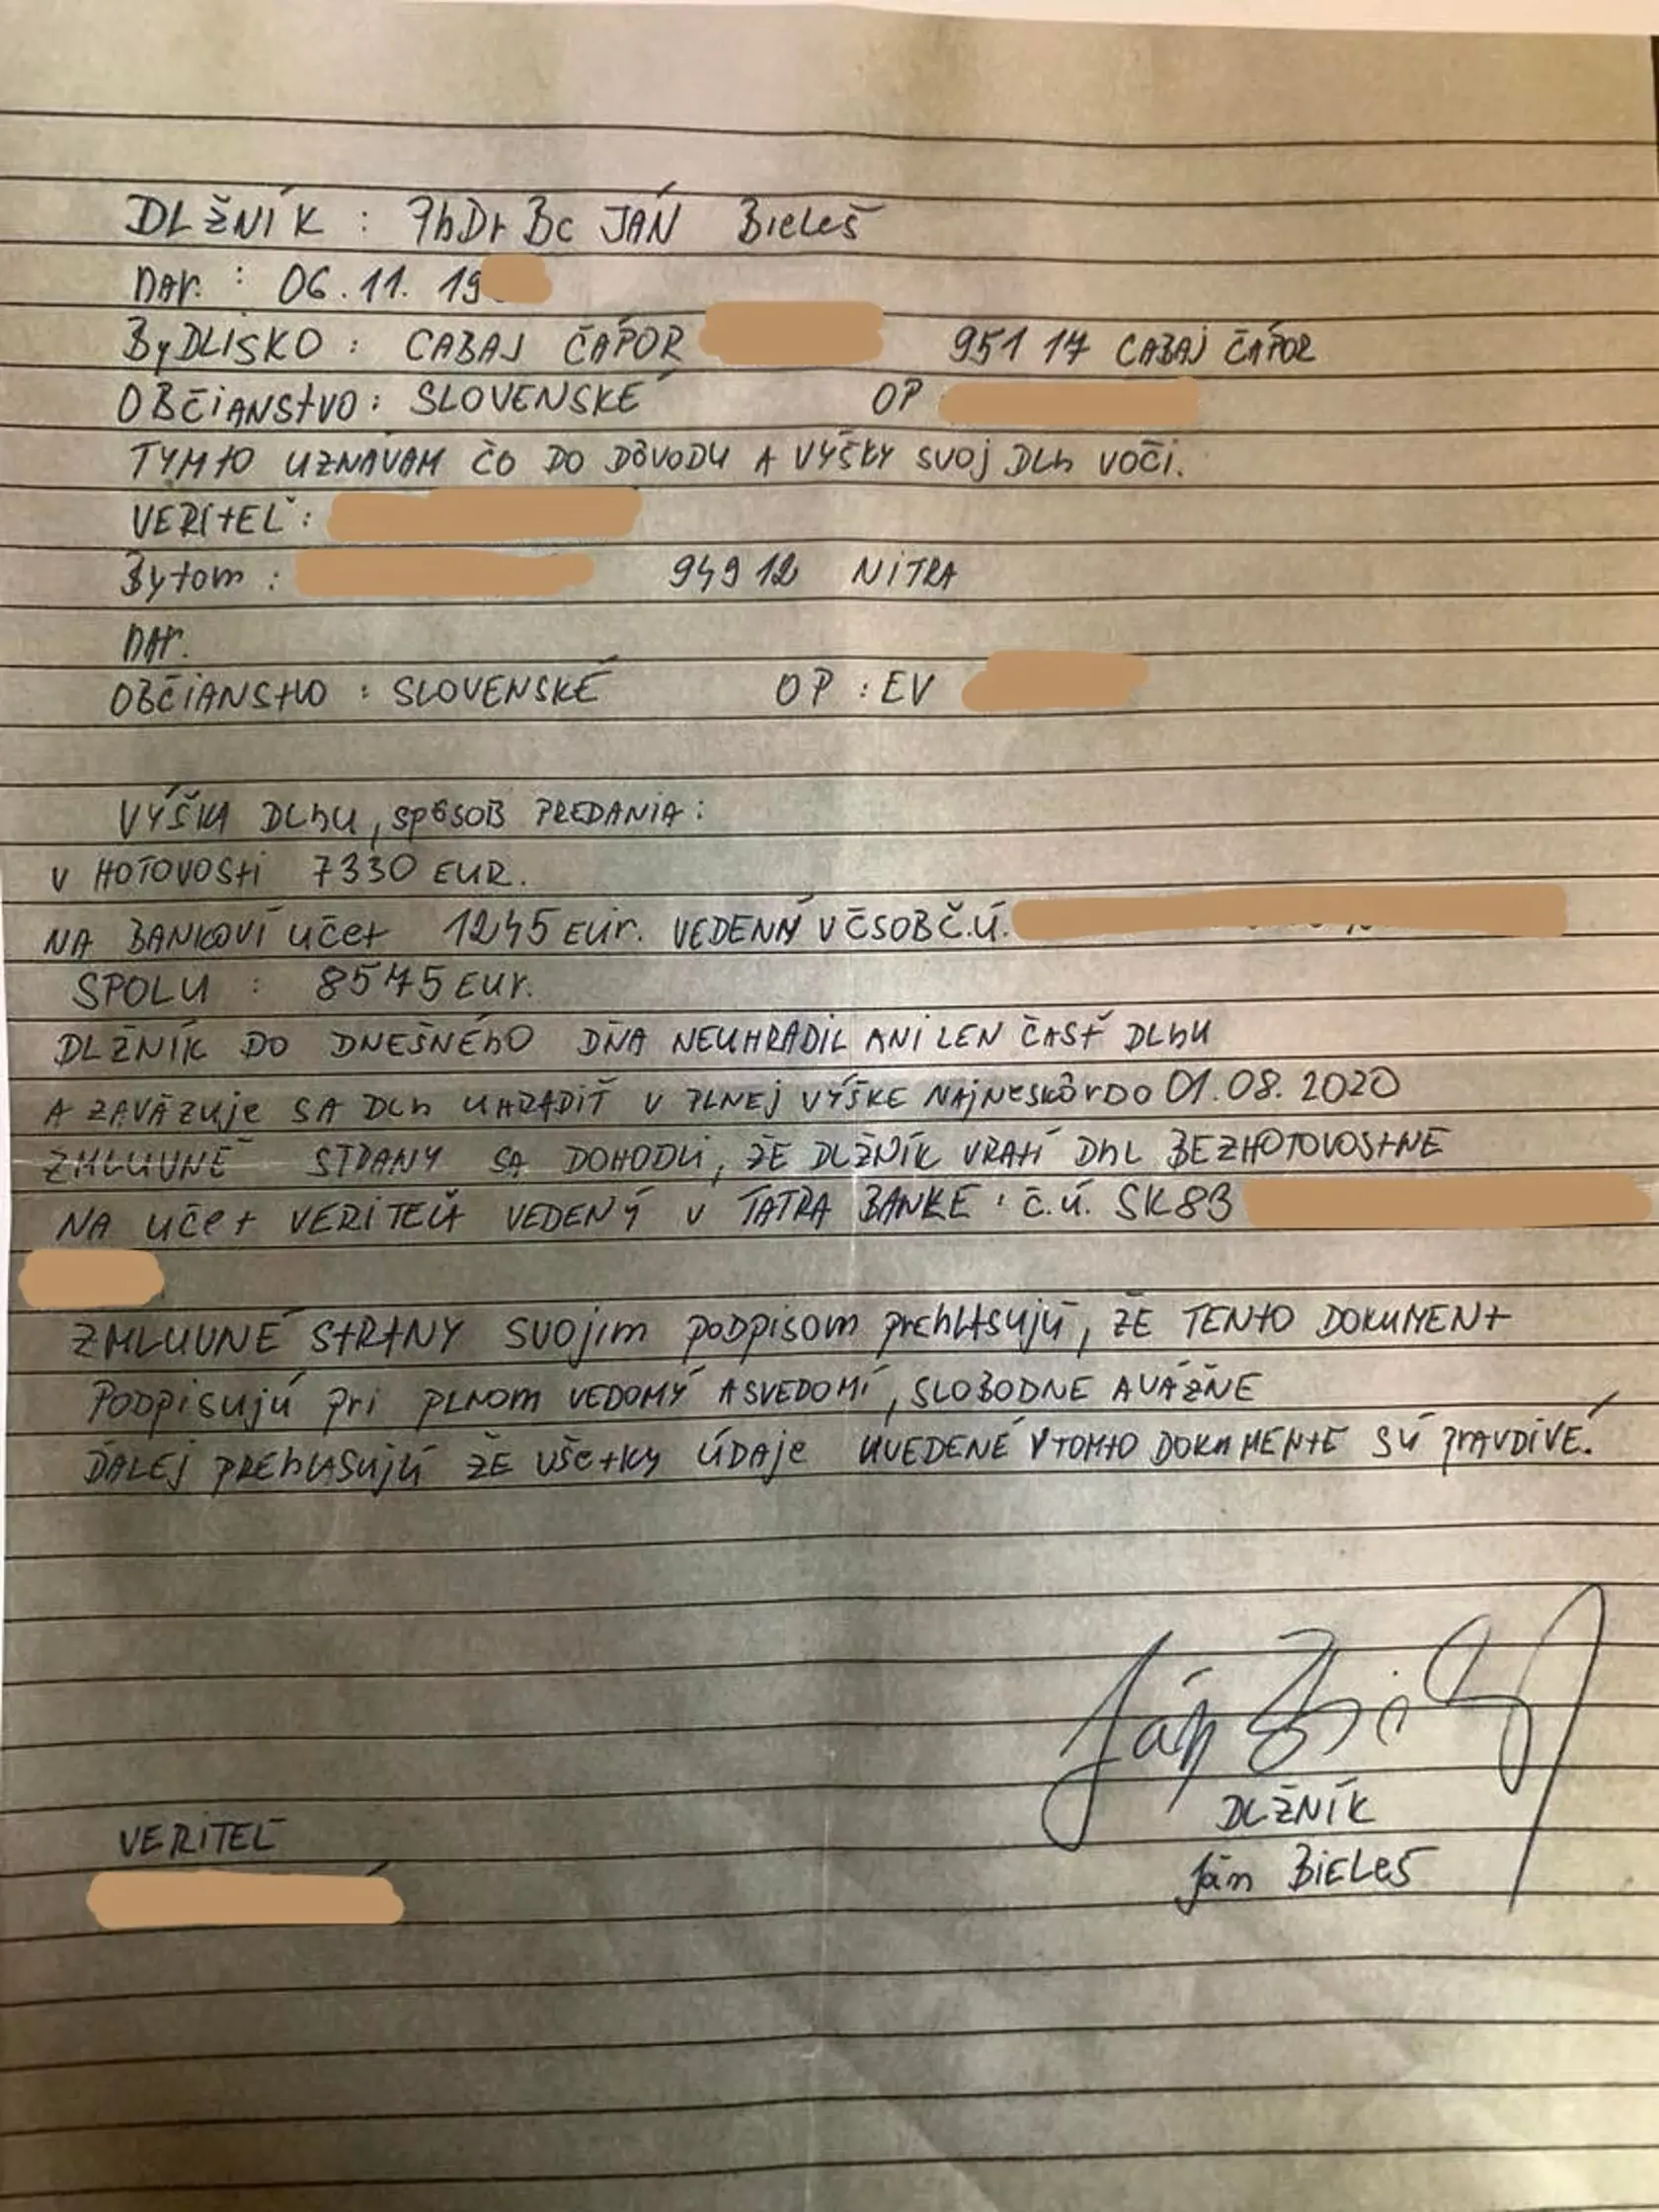 DLŽNÍK : PhDr Bc JÁN Bieleš
NAR. : 06.11.19
ByDLISKO : CABAJ ČÁPOR 951 17 CABAJ ČÁPOR
OBČIANSTVO : SLOVENSKÉ OP
TYMTO UZNÁVAM ČO DO DÔVODU A VÝŠKY SVOJ DLh VOČI.
VERITEĽ :
Bytom : 949 12 NITRA
NAR.
OBČIANSTVO : SLOVENSKÉ OP : EV
VÝŠKA DLhU, SPÔSOB PREDANIA :
V HOTOVOSTI 7330 EUR.
NA BANKOVÍ účet 1245 EUr. VEDENÝ V ČSOB Č.Ú.
SPOLU : 8575 EUr.
DLŽNÍK DO DNEŠNÉhO DŇA NEUHRADIL ANI LEN ČASŤ DLhU
A ZAVÄZUJE SA DLh UHRADIŤ V PLNEJ VÝŠKE NAJNESKÔR DO 01.08.2020
ZMLUVNÉ STRANY SA DOHODLI, ŽE DLŽNÍK VRÁTI DhL BEZHOTOVOSTNE
NA účet VERITEĽA VEDENÝ V TATRA BANKE : č.ú. SK83
ZMLUVNÉ STRANY SVOJIM PODPISOM PREhLASUJÚ, ŽE TENTO DOKUMENT
PODPISUJÚ PRI PLNOM VEDOMÝ A SVEDOMÍ, SLOBODNE A VÁŽNE
ĎALEJ PREhLASUJÚ ŽE VŠETKY ÚDAJE UVEDENÉ V TOMTO DOKUMENTE SÚ PRAVDIVÉ.
DLŽNÍK
VERITEĽ
Ján BIELEŠ